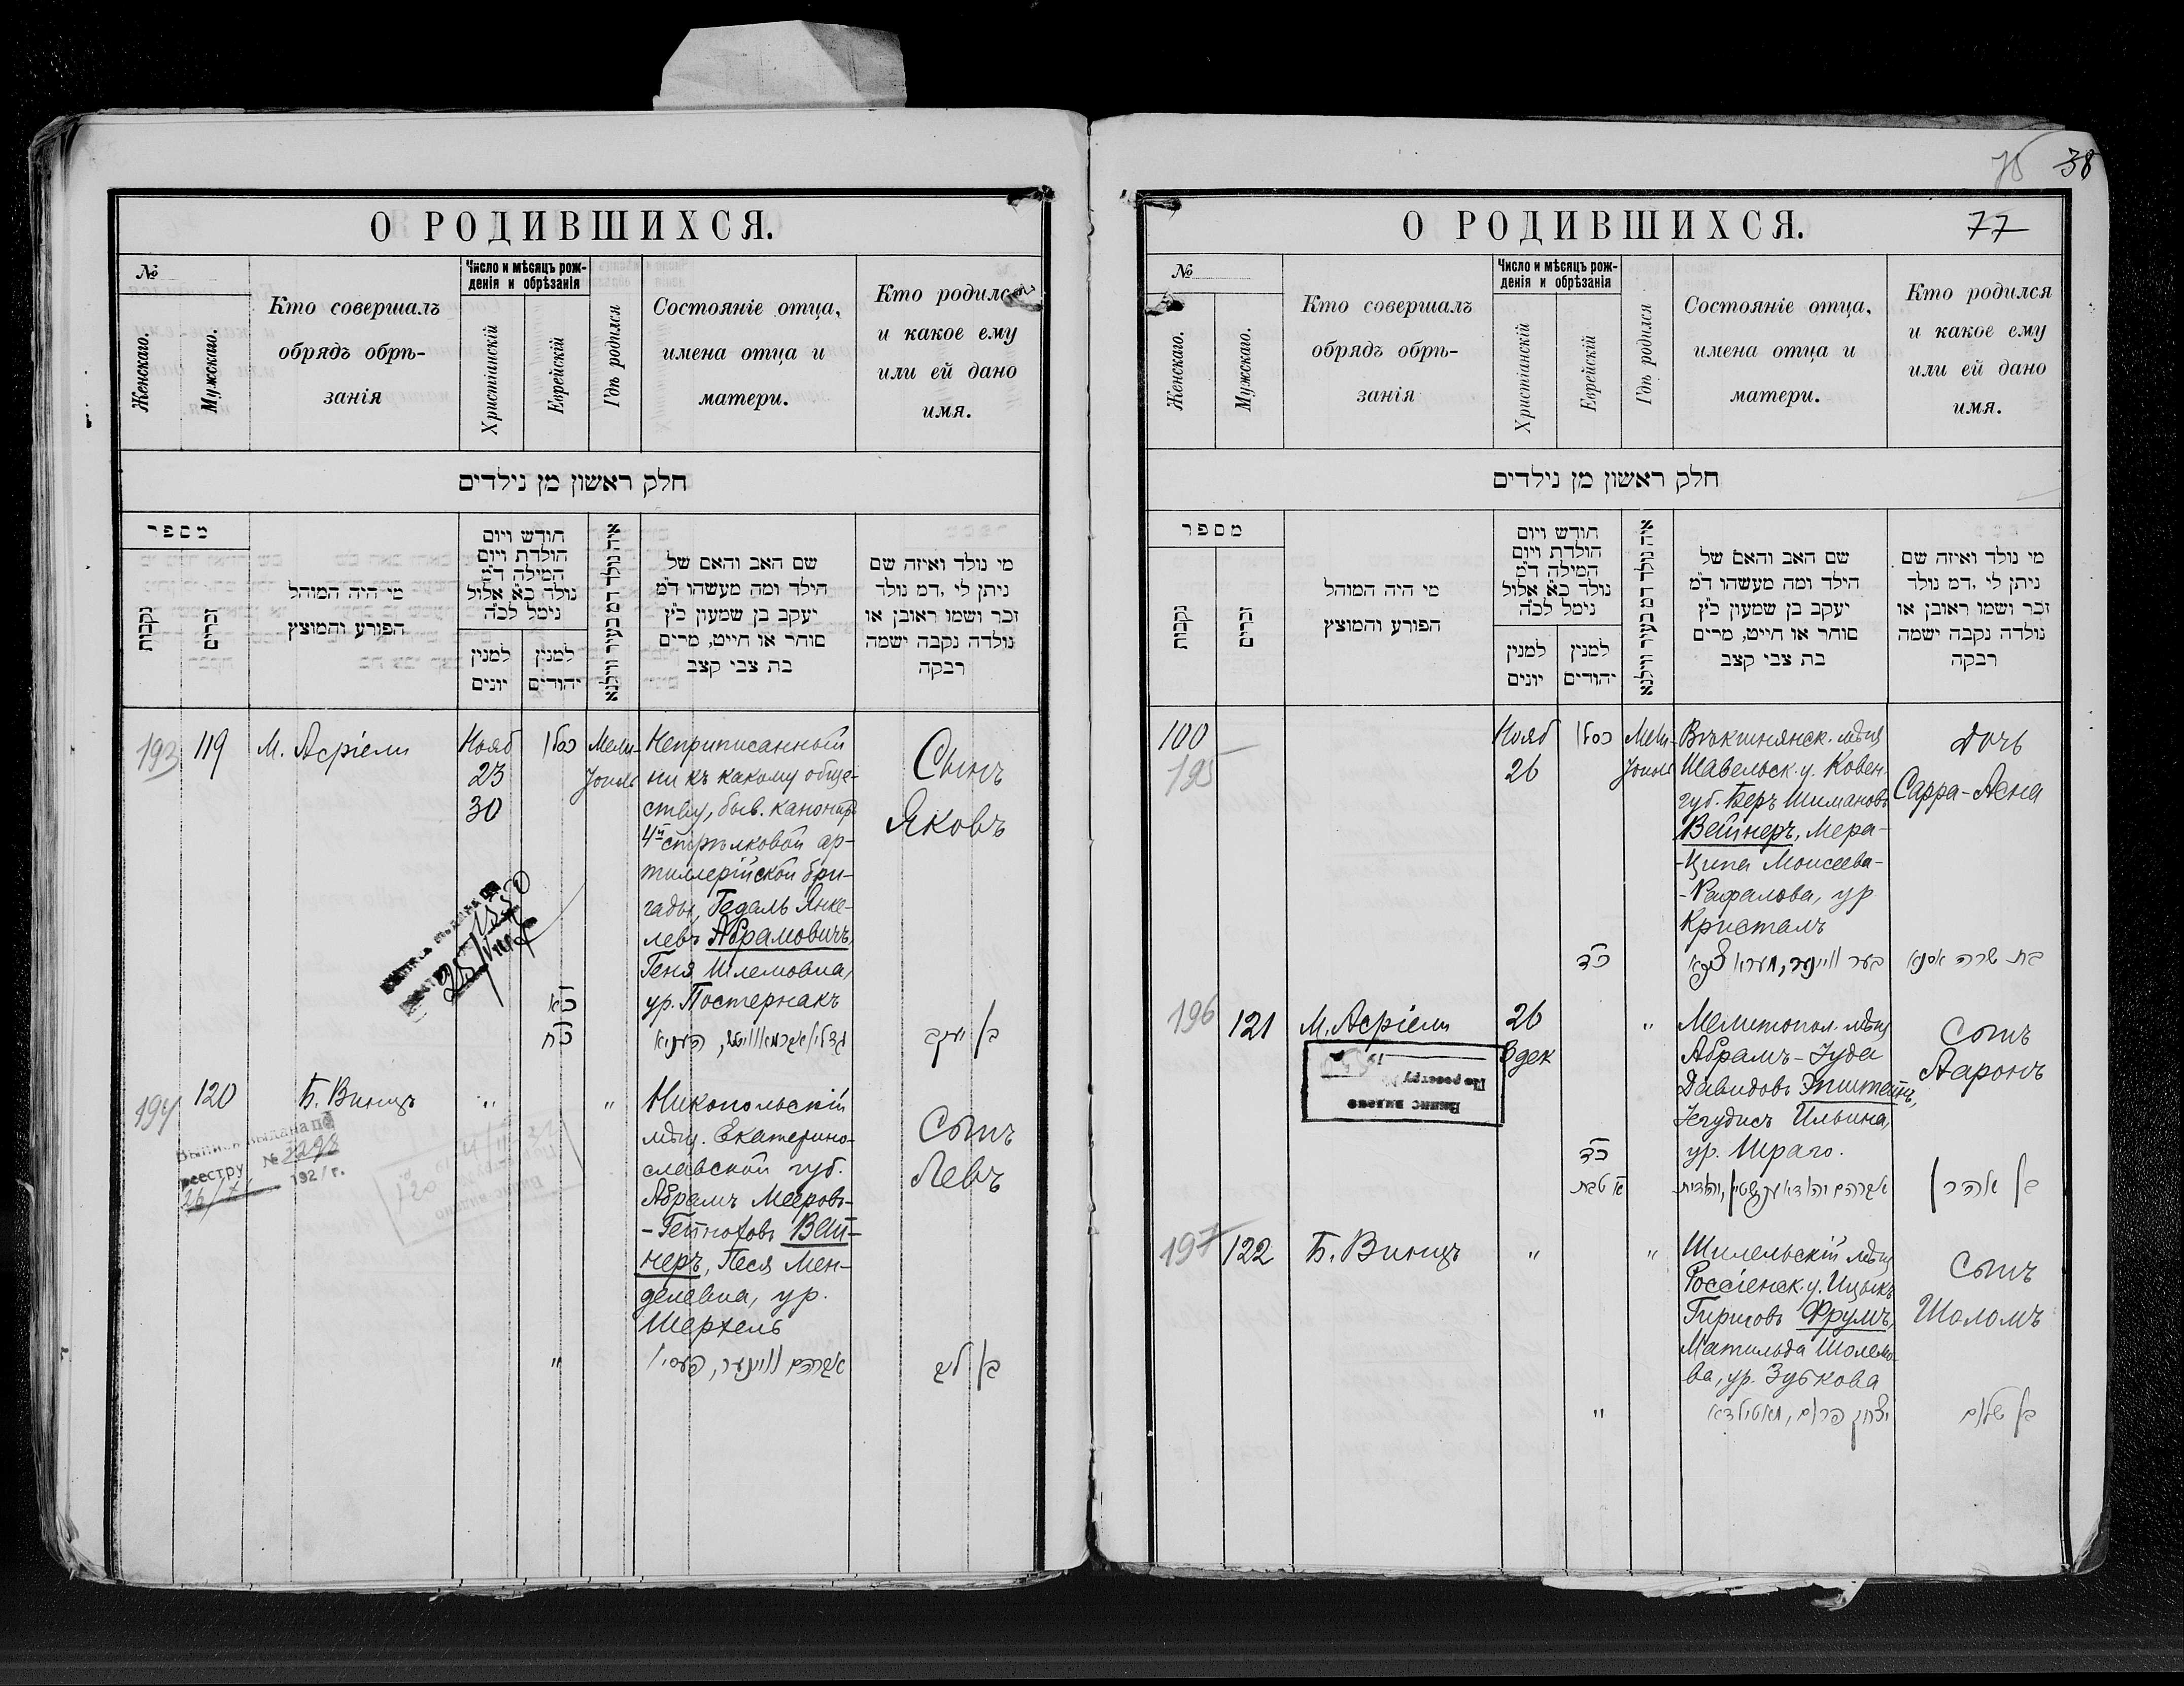 О РОДИВШИХСЯ.
№
Женскаго.
Мужскаго.
Кто совершалъ
обрядъ обрѣ-
занія
Число и мѣсяцъ рож-
денія и обрѣзанія
Христіанскій
Еврейскій
Гдѣ родился
Состояніе отца,
имена отца и
матери.
Кто родился
и какое ему
или ей дано
имя.
חלק ראשון מן נילדים
מספר
נקבות
זכרים
מי היה המוהל
הפורע והמוצץ
חודש ויום
הולדת ויום
המילה ד"מ
נולד כ"א אלול
נימל לכ"ה
למנין
יונים
למנין
יהודים
איה נולד דמ בעיר ווילנא
שם האב והאם של
הילד ומה מעשהו ד"מ
יעקב בן שמעון כ"ץ
סוחר או חייט, מרים
בת צבי קצב
מי נולד ואיזה שם
ניתן לי ,דמ נולד
זכר ושמו ראובן או
נולדה נקבה ישמה
רבקה
193
119
М. Асріели
Нояб
23
30
כסלו
כ"א
כ"ח
Мели-
тополь
Неприписанный
ни къ какому обще-
ству, быв. канониръ
4й стрѣлковой ар-
тиллерійской бри-
гады, Гедаль Янке-
левъ Абрамовичъ,
Геня Шлемовна,
ур. Постернакъ
Сынъ
Яковъ
בן יעקב
194
120
Б. Винцъ
"
"
Никопольскій
мѣщ. Екатерино-
славской губ.
Абрамъ Мееровъ-
-Гейноховъ Вей-
неръ, Песя Мен-
делевна, ур.
Шерхель
"
אברהם ווינער, פעסיא
Сынъ
Левъ
בן לב
реестру №
192 г.
75 38
О РОДИВШИХСЯ.
77
№
Женскаго.
Мужскаго.
Кто совершалъ
обрядъ обрѣ-
занія
Число и мѣсяцъ рож-
денія и обрѣзанія
Христіанскій
Еврейскій
Гдѣ родился
Состояніе отца,
имена отца и
матери.
Кто родился
и какое ему
или ей дано
имя.
חלק ראשון מן נילדים
מספר
נקבות
זכרים
מי היה המוהל
הפורע והמוצץ
חודש ויום
הולדת ויום
המילה ד"מ
נולד כ"א אלול
נימל לכ"ה
למנין
יונים
למנין
יהודים
איה נולד דמ בעיר ווילנא
שם האב והאם של
הילד ומה מעשהו ד"מ
יעקב בן שמעון כ"ץ
סוחר או חייט, מרים
בת צבי קצב
מי נולד ואיזה שם
ניתן לי ,דמ נולד
זכר ושמו ראובן או
נולדה נקבה ישמה
רבקה
100
195
Нояб
26
כסלו
כ"ד
Мели-
тополь
Вѣкшнянск. мѣщ
Шавельск. у. Ковен.
губ. Беръ Шимановъ
Вейнеръ, Мера-
-Ципа Моисеева-
-Рафалова, ур
Кристалъ
בער ווינער, מערא צפא
Дочь
Сарра-Асна
בת שרה אסנא
196
121
М. Асріели
26
3 дек
כ"ד
א טבת
"
Мелитопол. мѣщ
Абрамъ-Іуда
Давидовъ Эпштейнъ,
Іегудисъ Ильина,
ур. Шраго.
Сынъ
Ааронъ
בן אהרן
197
122
Б. Винцъ
"
"
Шилельскій мѣщ
Россіенск. у. Ицыкъ
Гиршовъ Фрумъ,
Матильда Шолемо-
ва, ур. Зубкова
"
יצחק פרום, מאטילדא
Сынъ
Шоломъ
בן שלום